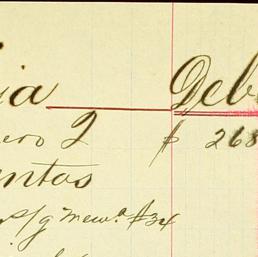 ia Deb
ero 2 $ 268
ntos
s/g Mew.ª $34